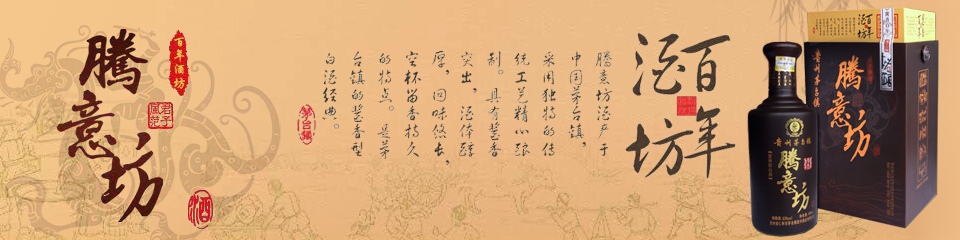 腾意坊
百年酒坊
君子風范
酒
百年
酒坊
腾意坊酒产于
中国茅台镇，
采用独特的传
统工艺精心酿
制。具有酱香
突出，酒体醇
厚，回味悠长，
空杯留香持久
的特点。是茅
台镇的酱香型
白酒经典。
茅台镇
贵州茅台镇
腾意坊
百年
酒坊
贵州茅台镇
腾意坊